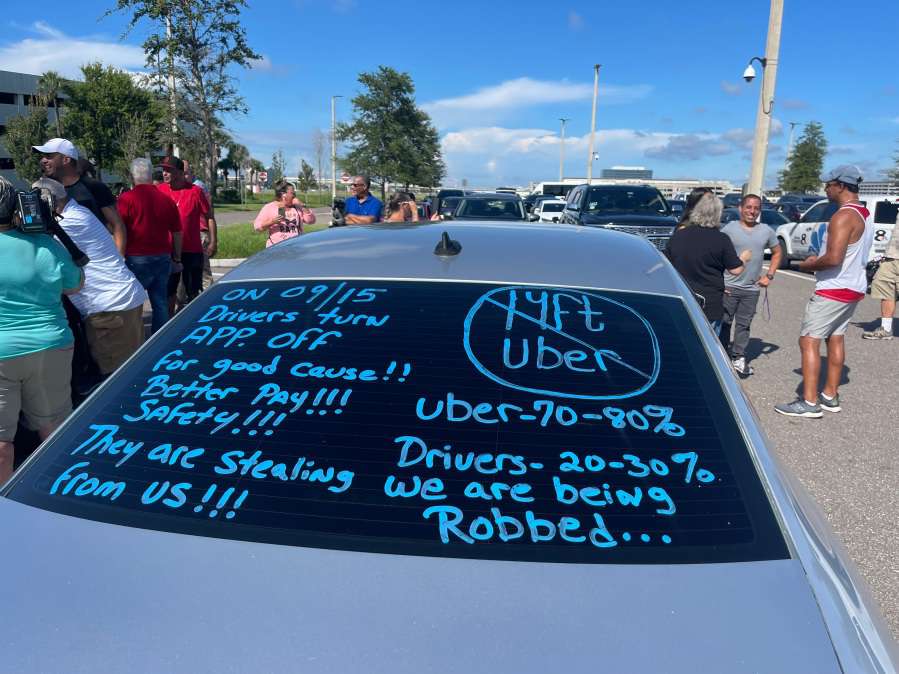 ON 09/15
Drivers turn
APP. OFF
For good cause!!
Better PAY!!!
SAFETY!!!
They are stealing
from us!!!
lyft
Uber
Uber-70-80%
Drivers- 20-30%
we are being
Robbed...
8